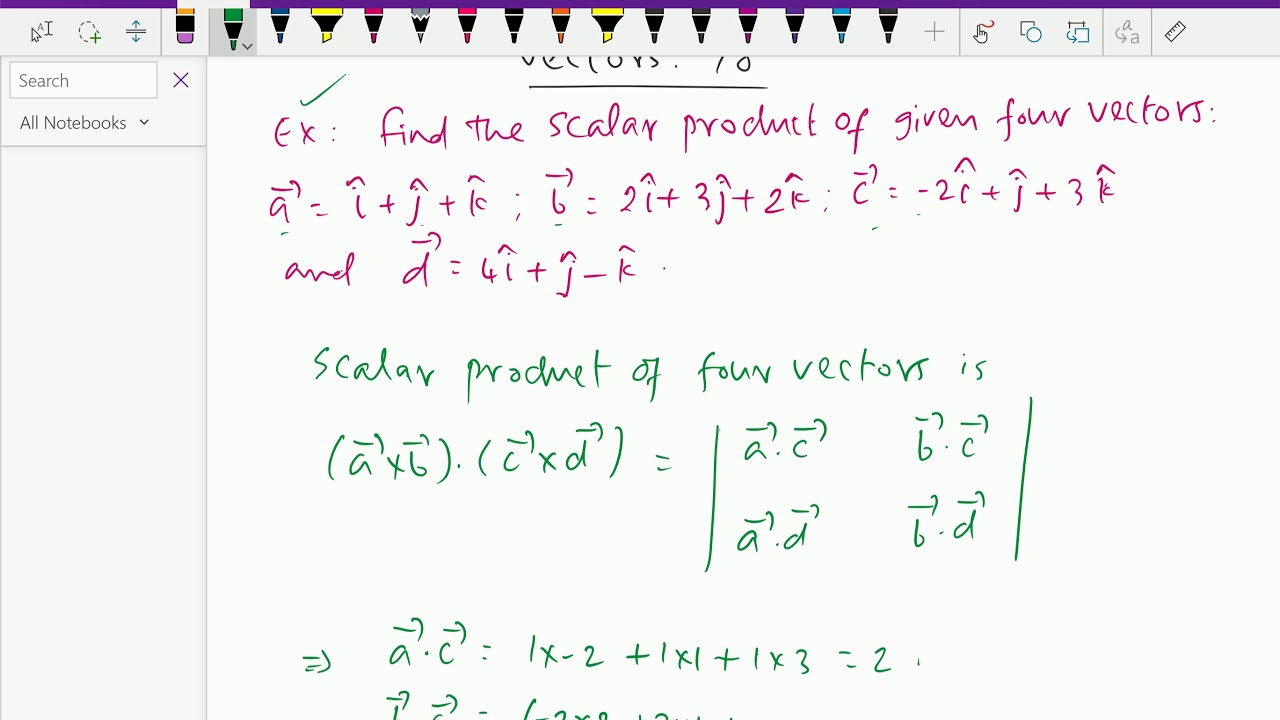 Search
All Notebooks
vectors: 10
Ex: Find the scalar product of given four vectors:
a⃗ = î + ĵ + k̂ ; b⃗ = 2î + 3ĵ + 2k̂ ; c⃗ = -2î + ĵ + 3k̂
and d⃗ = 4î + ĵ - k̂ .
Scalar product of four vectors is
(a⃗ × b⃗) . (c⃗ × d⃗) = | a⃗.c⃗ b⃗.c⃗ |
| a⃗.d⃗ b⃗.d⃗ |
⇒ a⃗.c⃗ = 1×-2 + 1×1 + 1×3 = 2 .